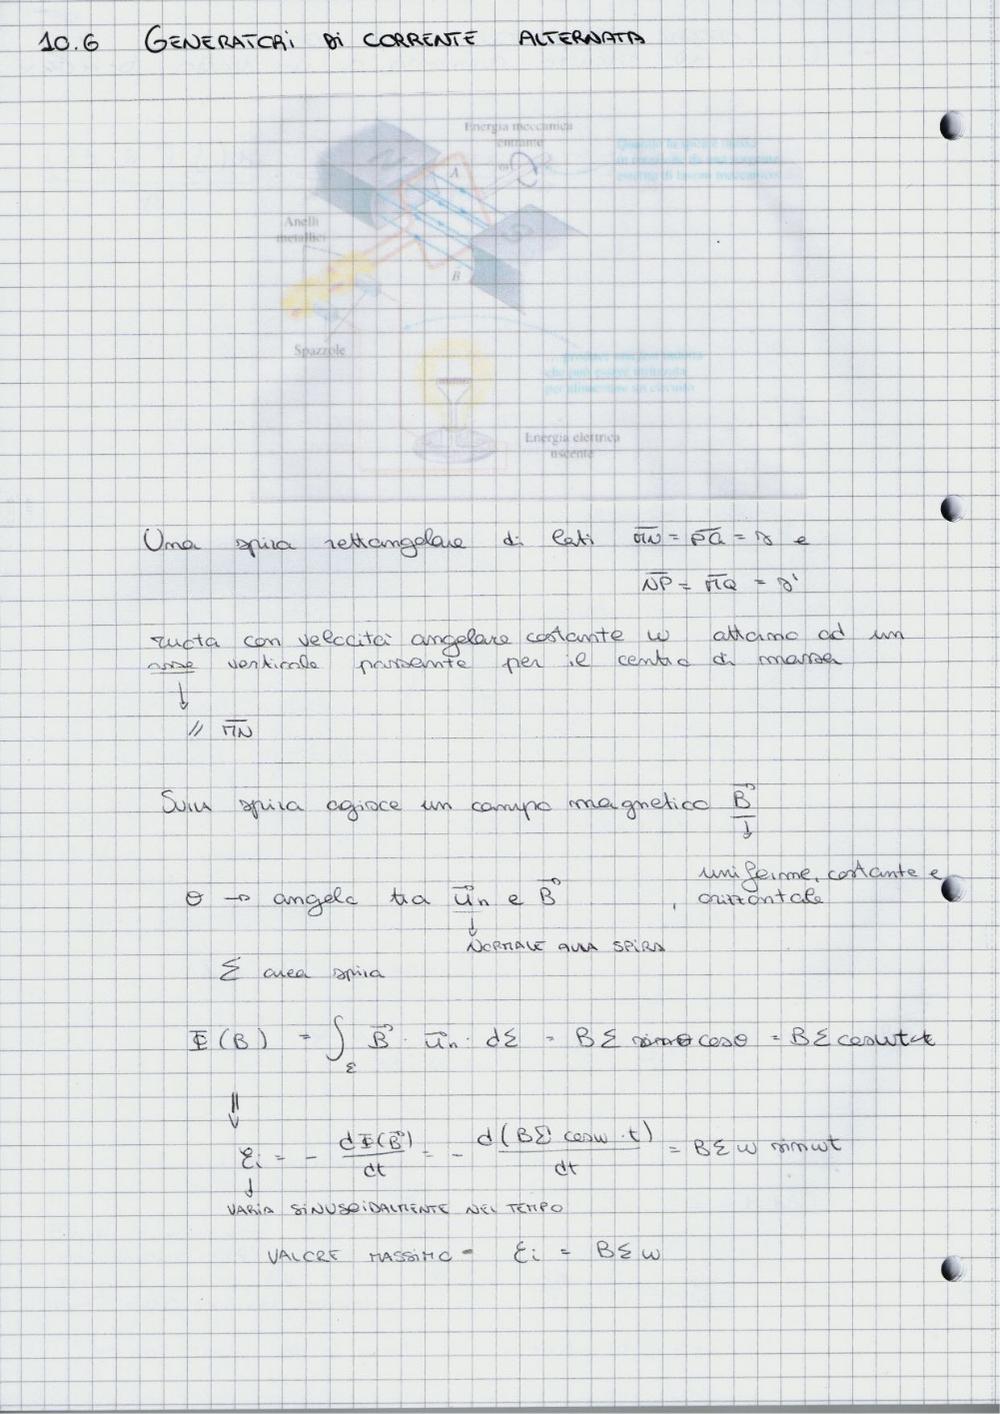 10.6 GENERATORI DI CORRENTE ALTERNATA
Energia meccanica
entrante
A
ω
N
S
Anelli
metallici
B
Spazzole
che può essere utilizzata
per alimentare un circuito
Energia elettrica
uscente
Una spira rettangolare di lati M̅N̅ = P̅Q̅ = s e
N̅P̅ = M̅Q̅ = s'
ruota con velocità angolare costante ω attorno ad un
asse verticale passante per il centro di massa
↓
// M̅N̅
Sulla spira agisce un campo magnetico B⃗
↓
uniforme, costante e
orizzontale
θ → angolo tra u⃗n e B⃗ ,
↓
NORMALE ALLA SPIRA
Σ area spira
Φ(B) = ∫Σ B⃗ · u⃗n · dΣ = BΣ cosθ = BΣ cosωt
⇓
Ɛi = - dΦ(B⃗)/dt = - d(BΣ cosω·t)/dt = BΣω sinωt
↓
VARIA SINUSOIDALMENTE NEL TEMPO
VALORE MASSIMO = Ɛi = BΣω